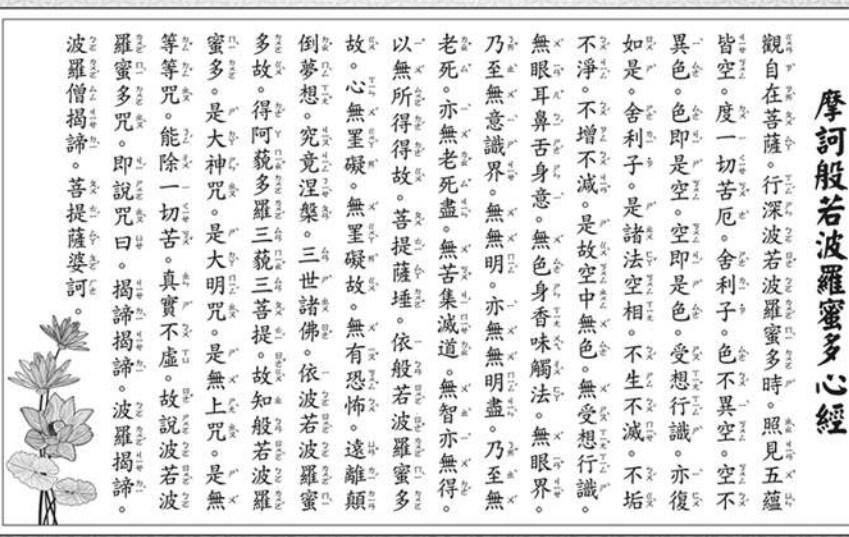 摩訶般若波羅蜜多心經
觀自在菩薩。行深波若波羅蜜多時。照見五蘊
皆空。度一切苦厄。舍利子。色不異空。空不
異色。色即是空。空即是色。受想行識。亦復
如是。舍利子。是諸法空相。不生不滅。不垢
不淨。不增不減。是故空中無色。無受想行識。
無眼耳鼻舌身意。無色身香味觸法。無眼界。
乃至無意識界。無無明。亦無無明盡。乃至無
老死。亦無老死盡。無苦集滅道。無智亦無得。
以無所得得故。菩提薩埵。依般若波羅蜜多
故。心無罣礙。無罣礙故。無有恐怖。遠離顛
倒夢想。究竟涅槃。三世諸佛。依波若波羅蜜
多故。得阿藐多羅三藐三菩提。故知般若波羅
蜜多。是大神咒。是大明咒。是無上咒。是無
等等咒。能除一切苦。真實不虛。故說波若波
羅蜜多咒。即說咒曰。揭諦揭諦。波羅揭諦。
波羅僧揭諦。菩提薩婆訶。